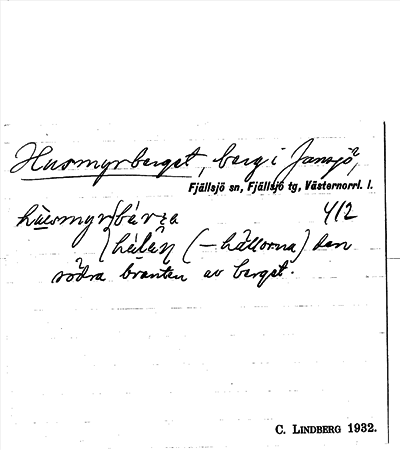 Husmyrberget, berg i Jansjö,
Fjällsjö sn, Fjällsjö tg, Västernorrl. l.
412
) (-hällorna) den
södra branten av berget.
C. LINDBERG 1932.